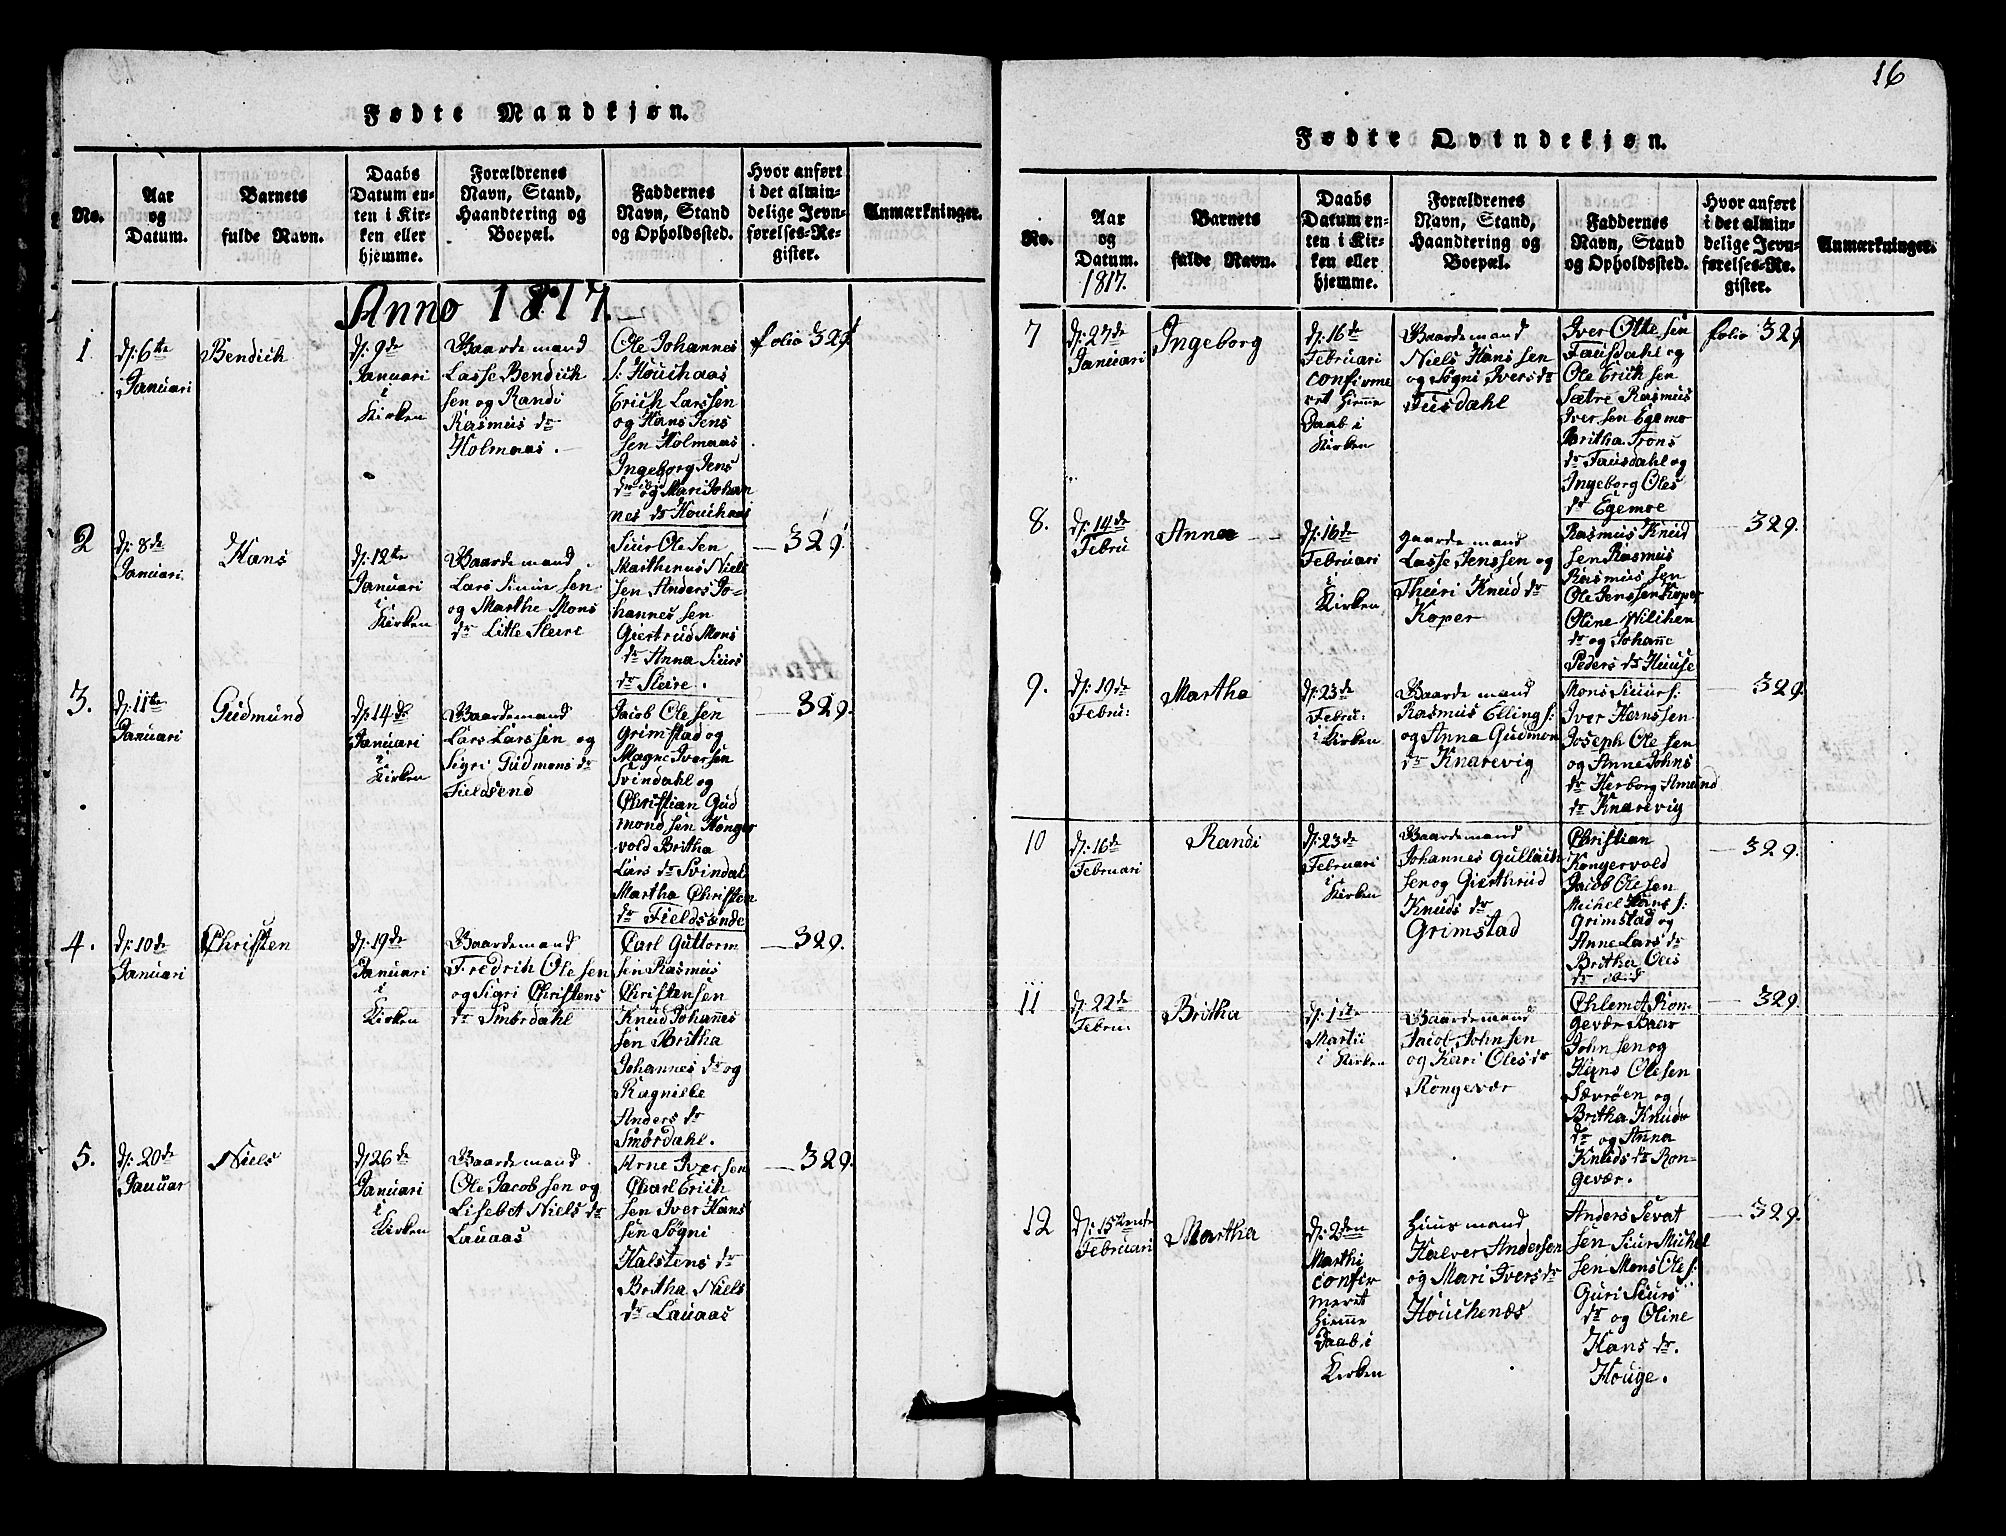 Fødte Mandkjøn.
No.
Aar
og
Datum.
Barnets
fulde Navn.
Daabs
Datum en-
ten i Kir-
ken eller
hjemme.
Forældrenes
Navn, Stand,
Haandtering og
Boepæl.
Faddernes
Navn, Stand
og Opholdssted.
Hvor anført
i det almin-
delige Jevn-
førelses-Re-
gister.
Anmærkninger.
Anno 1817.
1
d: 6te
Januari
Bendich
d: 9de
Januari
i
Kirken
Gaardemand
Lasse Bendich
sen og Randi
Rasmus dr
Holmaas.
Ole Johannes
s: Houchaas
Erich Larssen
og Hans Jens
sen Holmaas
Ingeborg Jens
dr ibid og Mari Johan
nes dr Houchaas
folio 329
2
d: 8de
Januari
Hans
d: 12te
Januari
i
Kirken
Gaardemand
Lars Siursen
og Marthe Mons
dr Litle Sleire
Siur Olesen
Niels
sen Anders Jo-
hannessen
Giertrud Mons
dr Anna Siurs
dr Sleire.
329
3.
d: 11te
Januari
Gudmund
d: 14de
Januari
i
Kirken
Gaardemand
Lars Larssen og
Sigri Gudmons dr
Fieldsend
Jacob Olesen
Grimstad og
Magne Iversen
Svindahl og
Christian Gud
mondsen Konger
vold Britha
Lars dr Svindal
Martha Christen
dr Fieldsende
329.
4.
d: 10de
Januari
Christen
d: 19de
Januari
i
Kirken
Gaardemand
Fredrih Olesen
og Sigri Christens
dr Smørdahl
Carl Guttorm
sen Rasmus
Christensen
Knud Johannes
sen Britha
Johannes dr og
Ragnille
Anders dr
Smørdahl.
329.
5.
d: 20de
Januar
Niels
d: 26de
Januari
i
Kirken
Gaardemand
Ole Jacobsen og
Lisebet Niels dr
Lauaas
Arne Iversen
Charl Erich
sen Iver Hans
sen Søgni
Halstens dr
Britha Niels
dr Lauaas
329.
16
Fødte Qvindekjøn.
No.
Aar
og
Datum.
1817.
Barnets
fulde Navn.
Daabs
Datum en-
ten i Kir-
ken eller
hjemme.
Forældrenes
Navn, Stand,
Haandtering og
Boepæl.
Faddernes
Navn, Stand
og Opholdssted.
Hvor anført
i det almin-
delige Jevn-
førelses-Re-
gister.
Anmærkninger.
7
d: 27de
Januari
Ingeborg
d: 16de
Februari
confirme
ret hiemme
Daab i
Kirken
Gaardemand
Niels Hanssen
og Søgni Ivers dr
Fusdahl
Iver Ottesen
Fausdahl og
Ole Erichsen
Sætre Rasmus
Iversen Egemo
Britha Trons
dr Fausdahl og
Ingeborg Oles
dr Egemoe
folio 329
8.
d: 14de
Febru
Anna
d: 16de
Februari
i
Kirken
gaardemand
Lasse Jenssen og
Thuri Knud dr
Koper
Rasmus Knud
sen Rasmus
Rasmussen
Ole Jenssen Koper
Oline Wilchen
dr og Johanne
Peders dr Huuse
329.
9.
d: 19de
Febru:
Martha
d: 23de
Febru:
i Kirken
Gaardemand
Rasmus Ellings:
og Anna Gudmon
dr Knarevig
Mons Siuurs:
Iver Hanssen
Joseph Olesen
og Anne Johns
dr Herborg Amund
dr Knarevig
329.
10
d: 16de
Februari
Randi
d: 23de
Februari
i
Kirken
Gaardemand
Johannes Gullach
sen og Gierthrud
Knuds dr
Grimstad
Christian
Kongervold
Jacob Olesen
Michel Hans s:
Grimstad og
Anne Lars dr
Britha Oles
dr ibid
329.
11
d: 22de
Febru:
Britha
d: 1ste
Martii
i Kirken
Gaardemand
Jacob Johnsen
og Kari Oles dr
Rongevær
Chlemet Ron-
gevær Baar
Johnsen og
Hans Olesen
Sævrøen og
Britha Knuds
dr og Anna
Knuds dr Ron-
gevær.
329.
12
d: 15tende
Februari
Martha
d: 2den
Marthi
confir
meret
hiemme
Daab, i
Kirken
Huusmand
Halver Andersen
og Mari Ivers dr
Houchenæs
Anders Sevat
sen Siur Michel
sen Mons Oles:
Guri Siurs
dr og Oline
Hans dr.
Houge.
329.